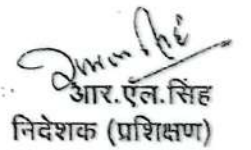 आर.एॅल.सिंह
निदेशक (प्रशिक्षण)